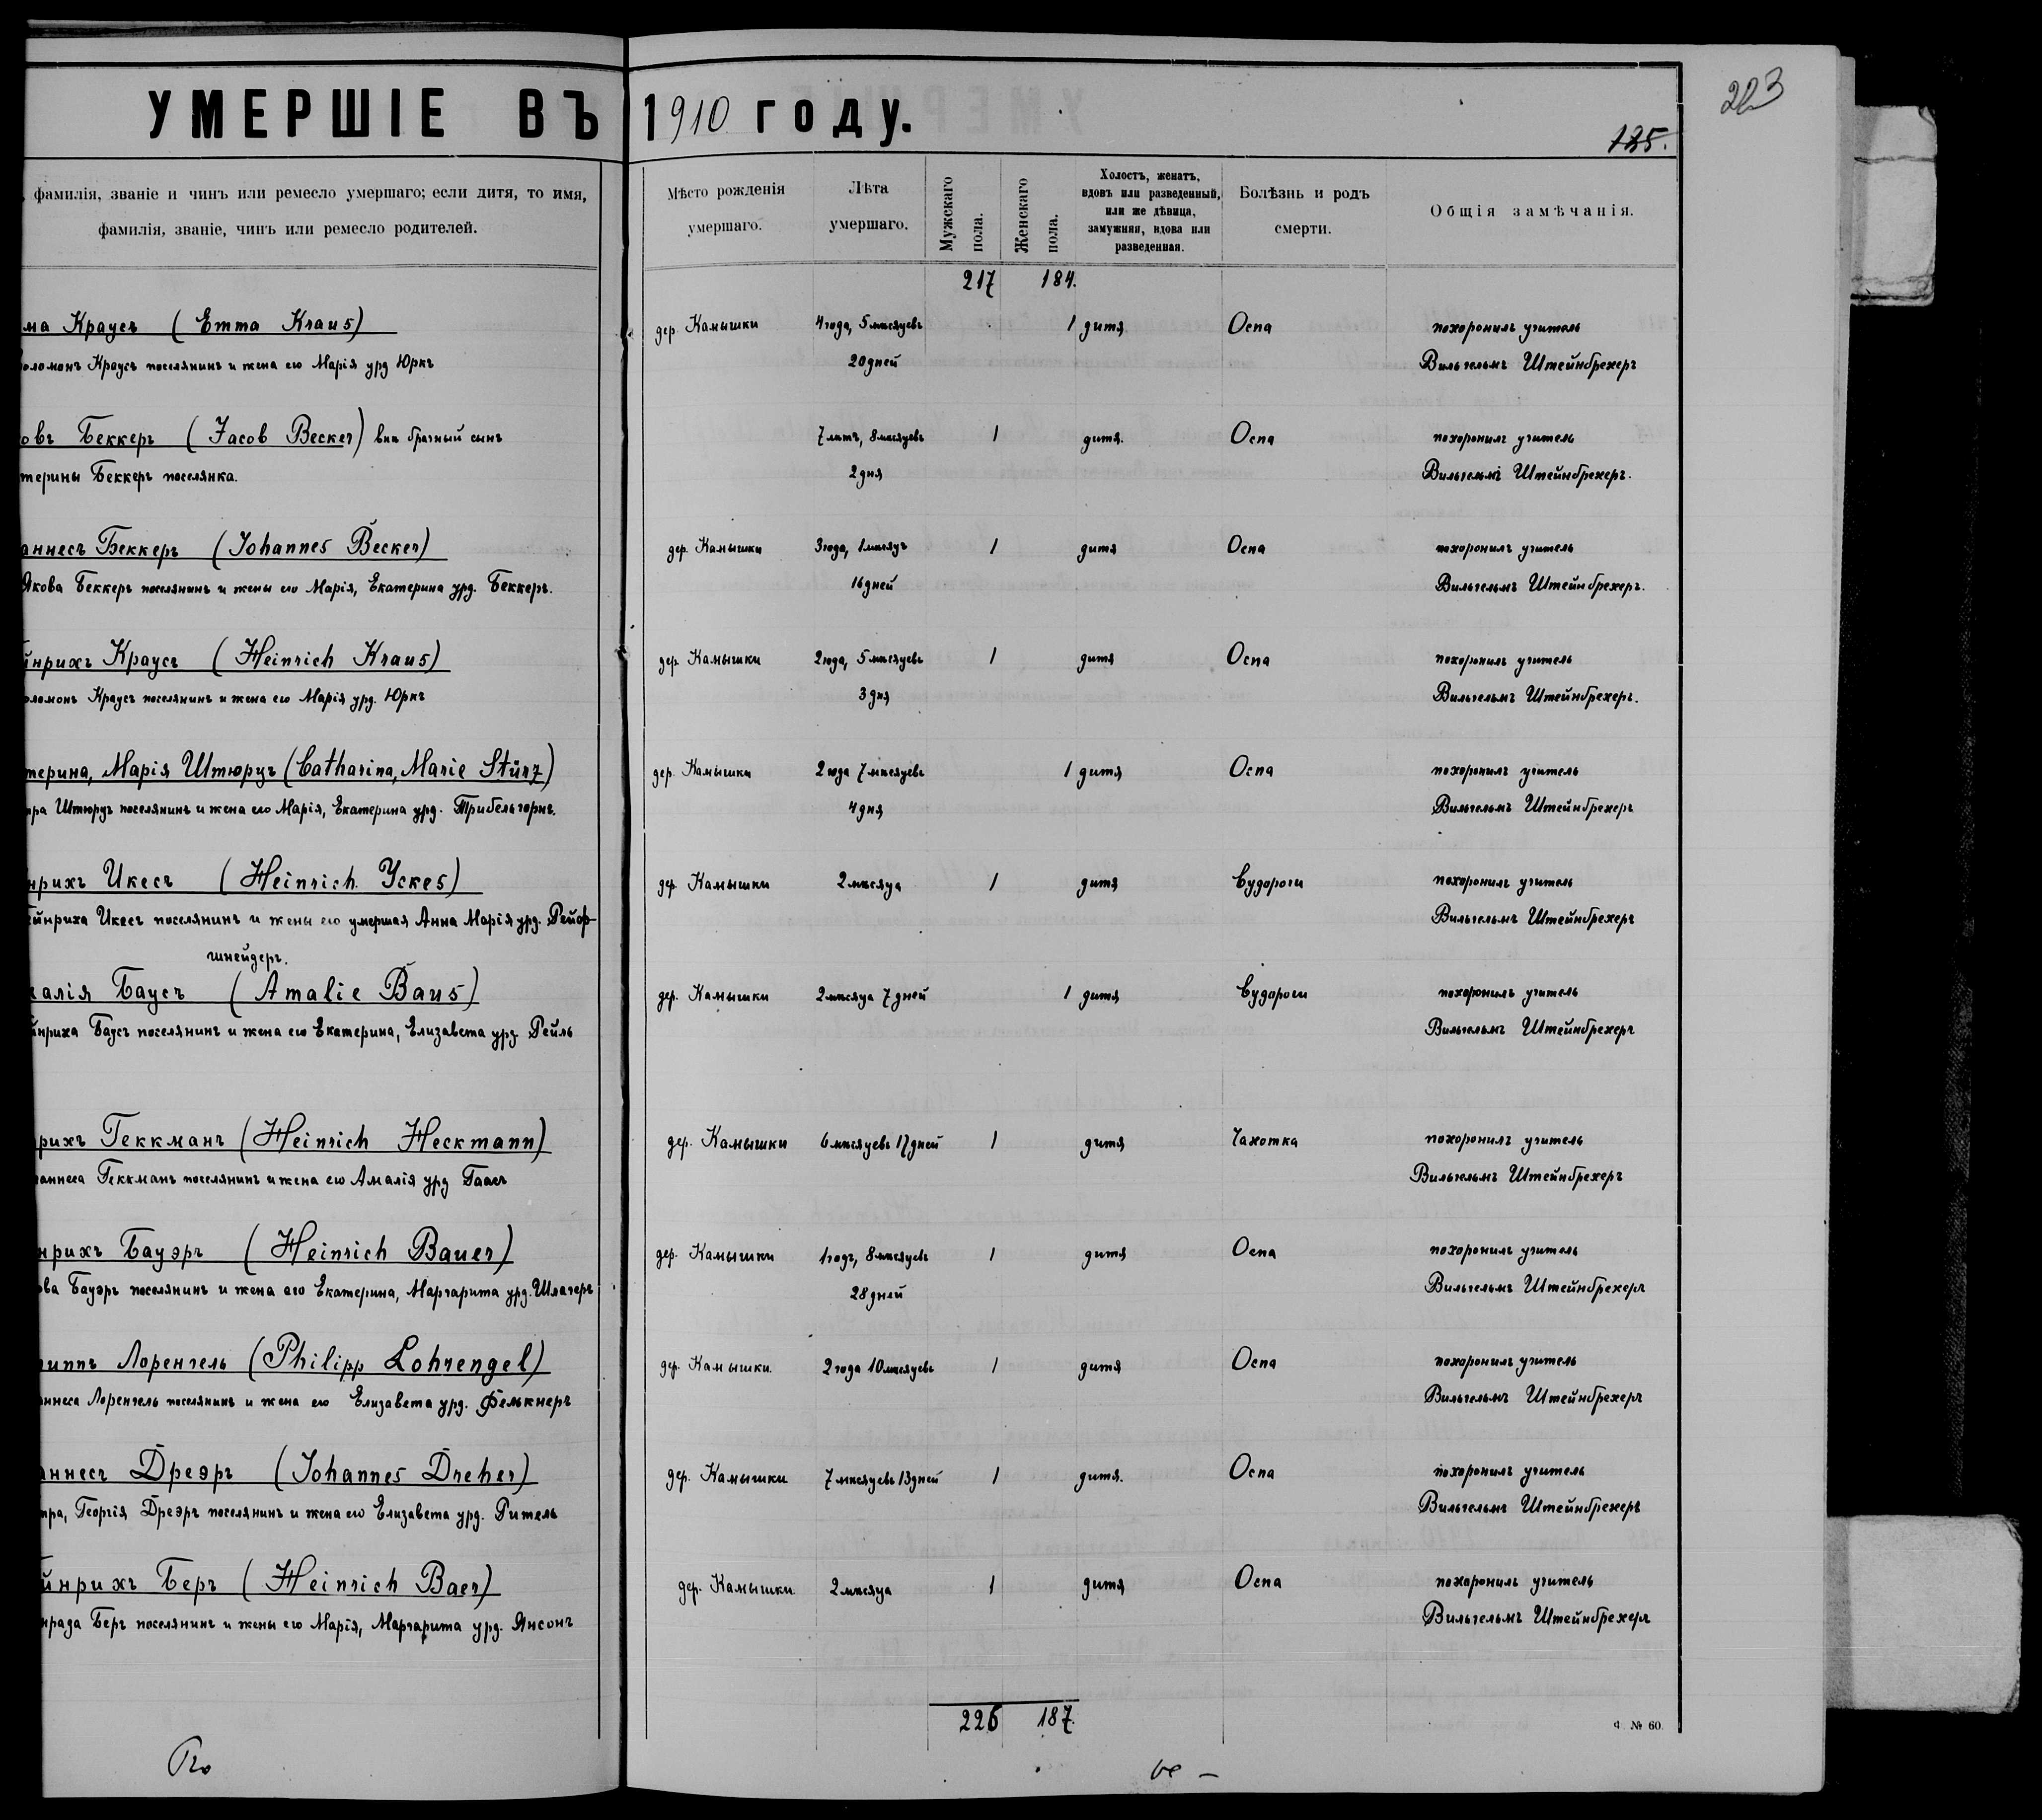 УМЕРШІЕ ВЪ 1910 году.
223
125.
фамилія, званіе и чинъ или ремесло умершаго; если дитя, то имя,
фамилія, званіе, чинъ или ремесло родителей.
Мѣсто рожденія
умершаго.
Лѣта
умершаго.
Мужскаго
пола.
Женскаго
пола.
Холостъ, женатъ,
вдовъ или разведенный,
или же дѣвица,
замужняя, вдова или
разведенная.
Болѣзнь и родъ
смерти.
Общія замѣчанія.
217 184.
ма Краусъ (Emma Kraus) дер. Камышки 4 года, 5 мѣсяцевъ 1 дитя Оспа похоронилъ учитель
оломонъ Краусъ поселянинъ и жена его Марія урд Юркъ 20 дней Вильгельмъ Штейнбрехеръ
овъ Беккеръ (Jacob Becker) внѣ брачный сынъ 7 лѣтъ, 8 мѣсяцевъ 1 дитя. Оспа похоронилъ учитель
терины Беккеръ поселянка. 2 дня Вильгельмъ Штейнбрехеръ.
аннесъ Беккеръ (Johannes Becker) дер. Камышки 3 года, 1 мѣсяцъ 1 дитя Оспа похоронилъ учитель
Якова Беккеръ поселянинъ и жены его Марія, Екатерина урд. Беккеръ. 16 дней Вильгельмъ Штейнбрехеръ.
йнрихъ Краусъ (Heinrich Kraus) дер. Камышки 2 года, 5 мѣсяцевъ 1 дитя Оспа похоронилъ учитель
оломонъ Краусъ поселянинъ и жена его Марія урд. Юркъ 3 дня Вильгельмъ Штейнбрехеръ.
терина, Марія Штюрцъ (Catharina, Marie Stürz) дер. Камышки 2 года 7 мѣсяцевъ 1 дитя Оспа похоронилъ учитель
тра Штюрцъ поселянинъ и жена его Марія, Екатерина урд. Трибельгорнъ. 4 дня Вильгельмъ Штейнбрехеръ
нрихъ Икесъ (Heinrich Yckes) дер. Камышки 2 мѣсяца 1 дитя Судороги похоронилъ учитель
ейнриха Икесъ поселянинъ и жены его умершая Анна Марія урд. Рейф- Вильгельмъ Штейнбрехеръ
шнейдеръ.
алія Баусъ (Amalie Baus) дер. Камышки 2 мѣсяца 7 дней 1 дитя Судороги похоронилъ учитель
йнриха Баусъ поселянинъ и жена его Екатерина, Елизавета урд. Рейль Вильгельмъ Штейнбрехеръ
рихъ Геккманъ (Heinrich Heckmann) дер. Камышки 6 мѣсяцевъ 17 дней 1 дитя Чахотка похоронилъ учитель
аннеса Геккманъ поселянинъ и жена его Амалія урд Гаасъ Вильгельмъ Штейнбрехеръ
нрихъ Бауэръ (Heinrich Bauer) дер. Камышки 1 годъ, 8 мѣсяцевъ 1 дитя Оспа похоронилъ учитель
ова Бауэръ поселянинъ и жена его Екатерина, Маргарита урд. Шлагеръ 28 дней Вильгельмъ Штейнбрехеръ
иппъ Лоренгель (Philipp Lohrengel) дер. Камышки. 2 года 10 мѣсяцевъ 1 дитя Оспа похоронилъ учитель
аннеса Лоренгель поселянинъ и жена его Елизавета урд. Фелькнеръ Вильгельмъ Штейнбрехеръ
аннесъ Дреэръ (Johannes Dreher) дер. Камышки 7 мѣсяцевъ 13 дней 1 дитя. Оспа похоронилъ учитель
тра, Георгія Дреэръ поселянинъ и жена его Елизавета урд. Ритель Вильгельмъ Штейнбрехеръ
йнрихъ Беръ (Heinrich Baer) дер. Камышки 2 мѣсяца 1 дитя Оспа похоронилъ учитель
нрада Беръ поселянинъ и жены его Марія, Маргарита урд. Янсонъ Вильгельмъ Штейнбрехеръ
226 187.
Ф. № 60.